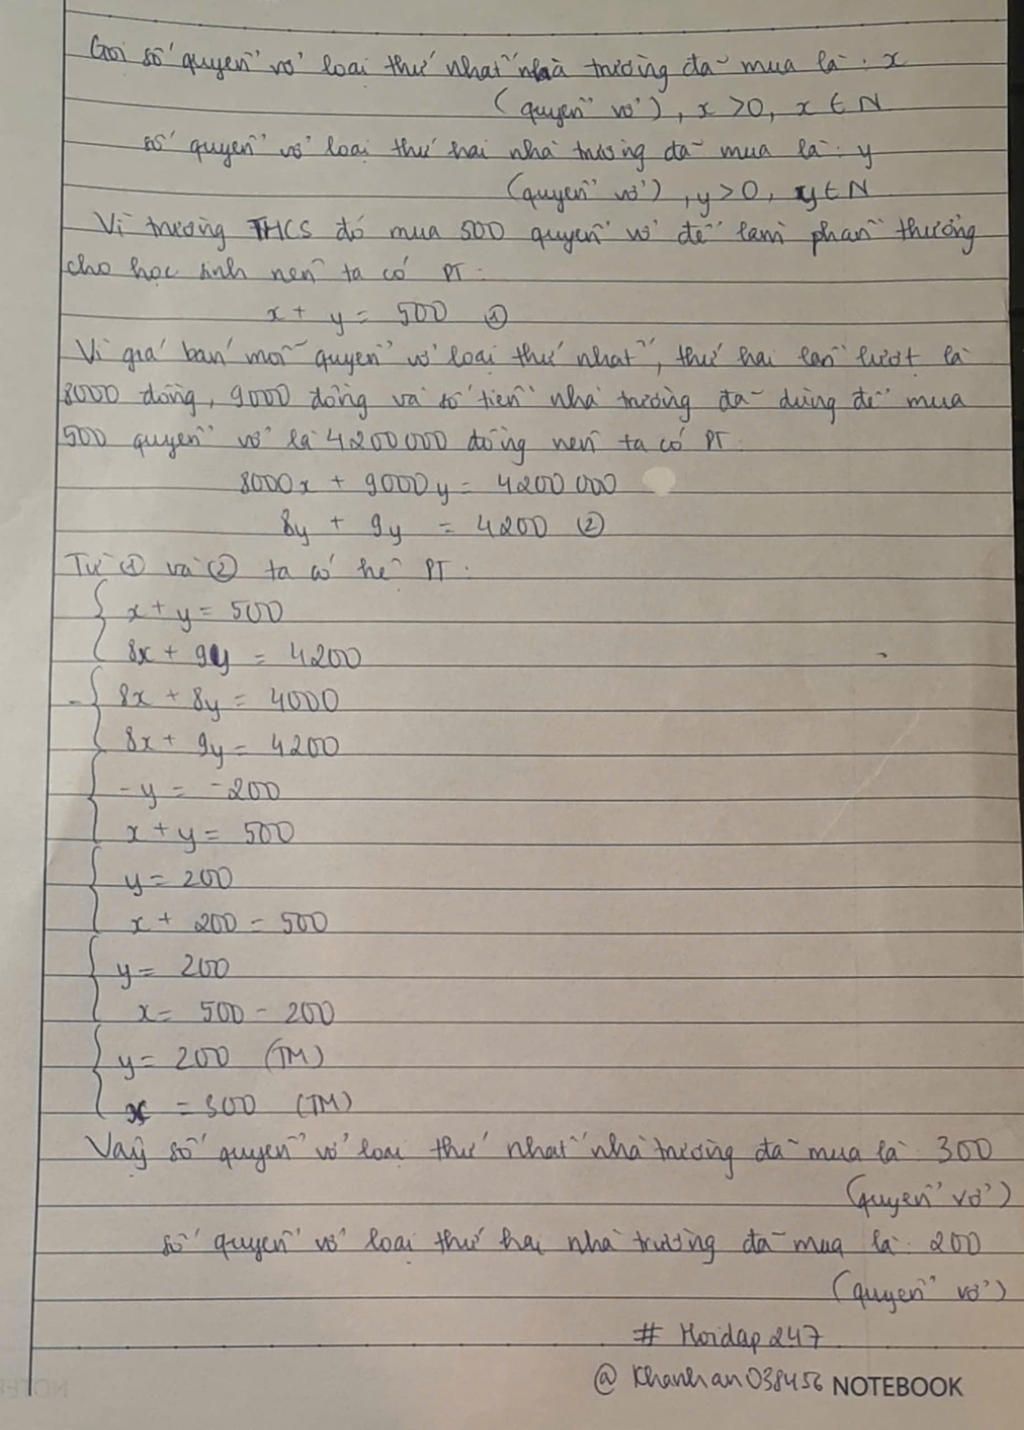 Gọi số quyển vở loại thứ nhất nhà trường đã mua là : x
(quyển vở), x >0, x ∈ N
số quyển vở loại thứ hai nhà trường đã mua là : y
(quyển vở), y >0, y ∈ N
Vì trường THCS đó mua 500 quyển vở để làm phần thưởng
cho học sinh nên ta có PT :
x + y = 500 ①
Vì giá bán mỗi quyển vở loại thứ nhất, thứ hai lần lượt là
8000 đồng, 9000 đồng và số tiền nhà trường đã dùng để mua
500 quyển vở là 4200000 đồng nên ta có PT :
8000x + 9000y = 4200 000
8y + 9y = 4200 ②
Từ ① và ② ta có hệ PT :
{ x + y = 500
8x + 9y = 4200
{ 8x + 8y = 4000
8x + 9y = 4200
{ -y = -200
x + y = 500
{ y = 200
x + 200 = 500
{ y = 200
x = 500 - 200
{ y = 200 (TM)
x = 300 (TM)
Vậy số quyển vở loại thứ nhất nhà trường đã mua là : 300
(quyển vở)
số quyển vở loại thứ hai nhà trường đã mua là : 200
(quyển vở)
# Hoidap247
@ Khanhan038456 NOTEBOOK